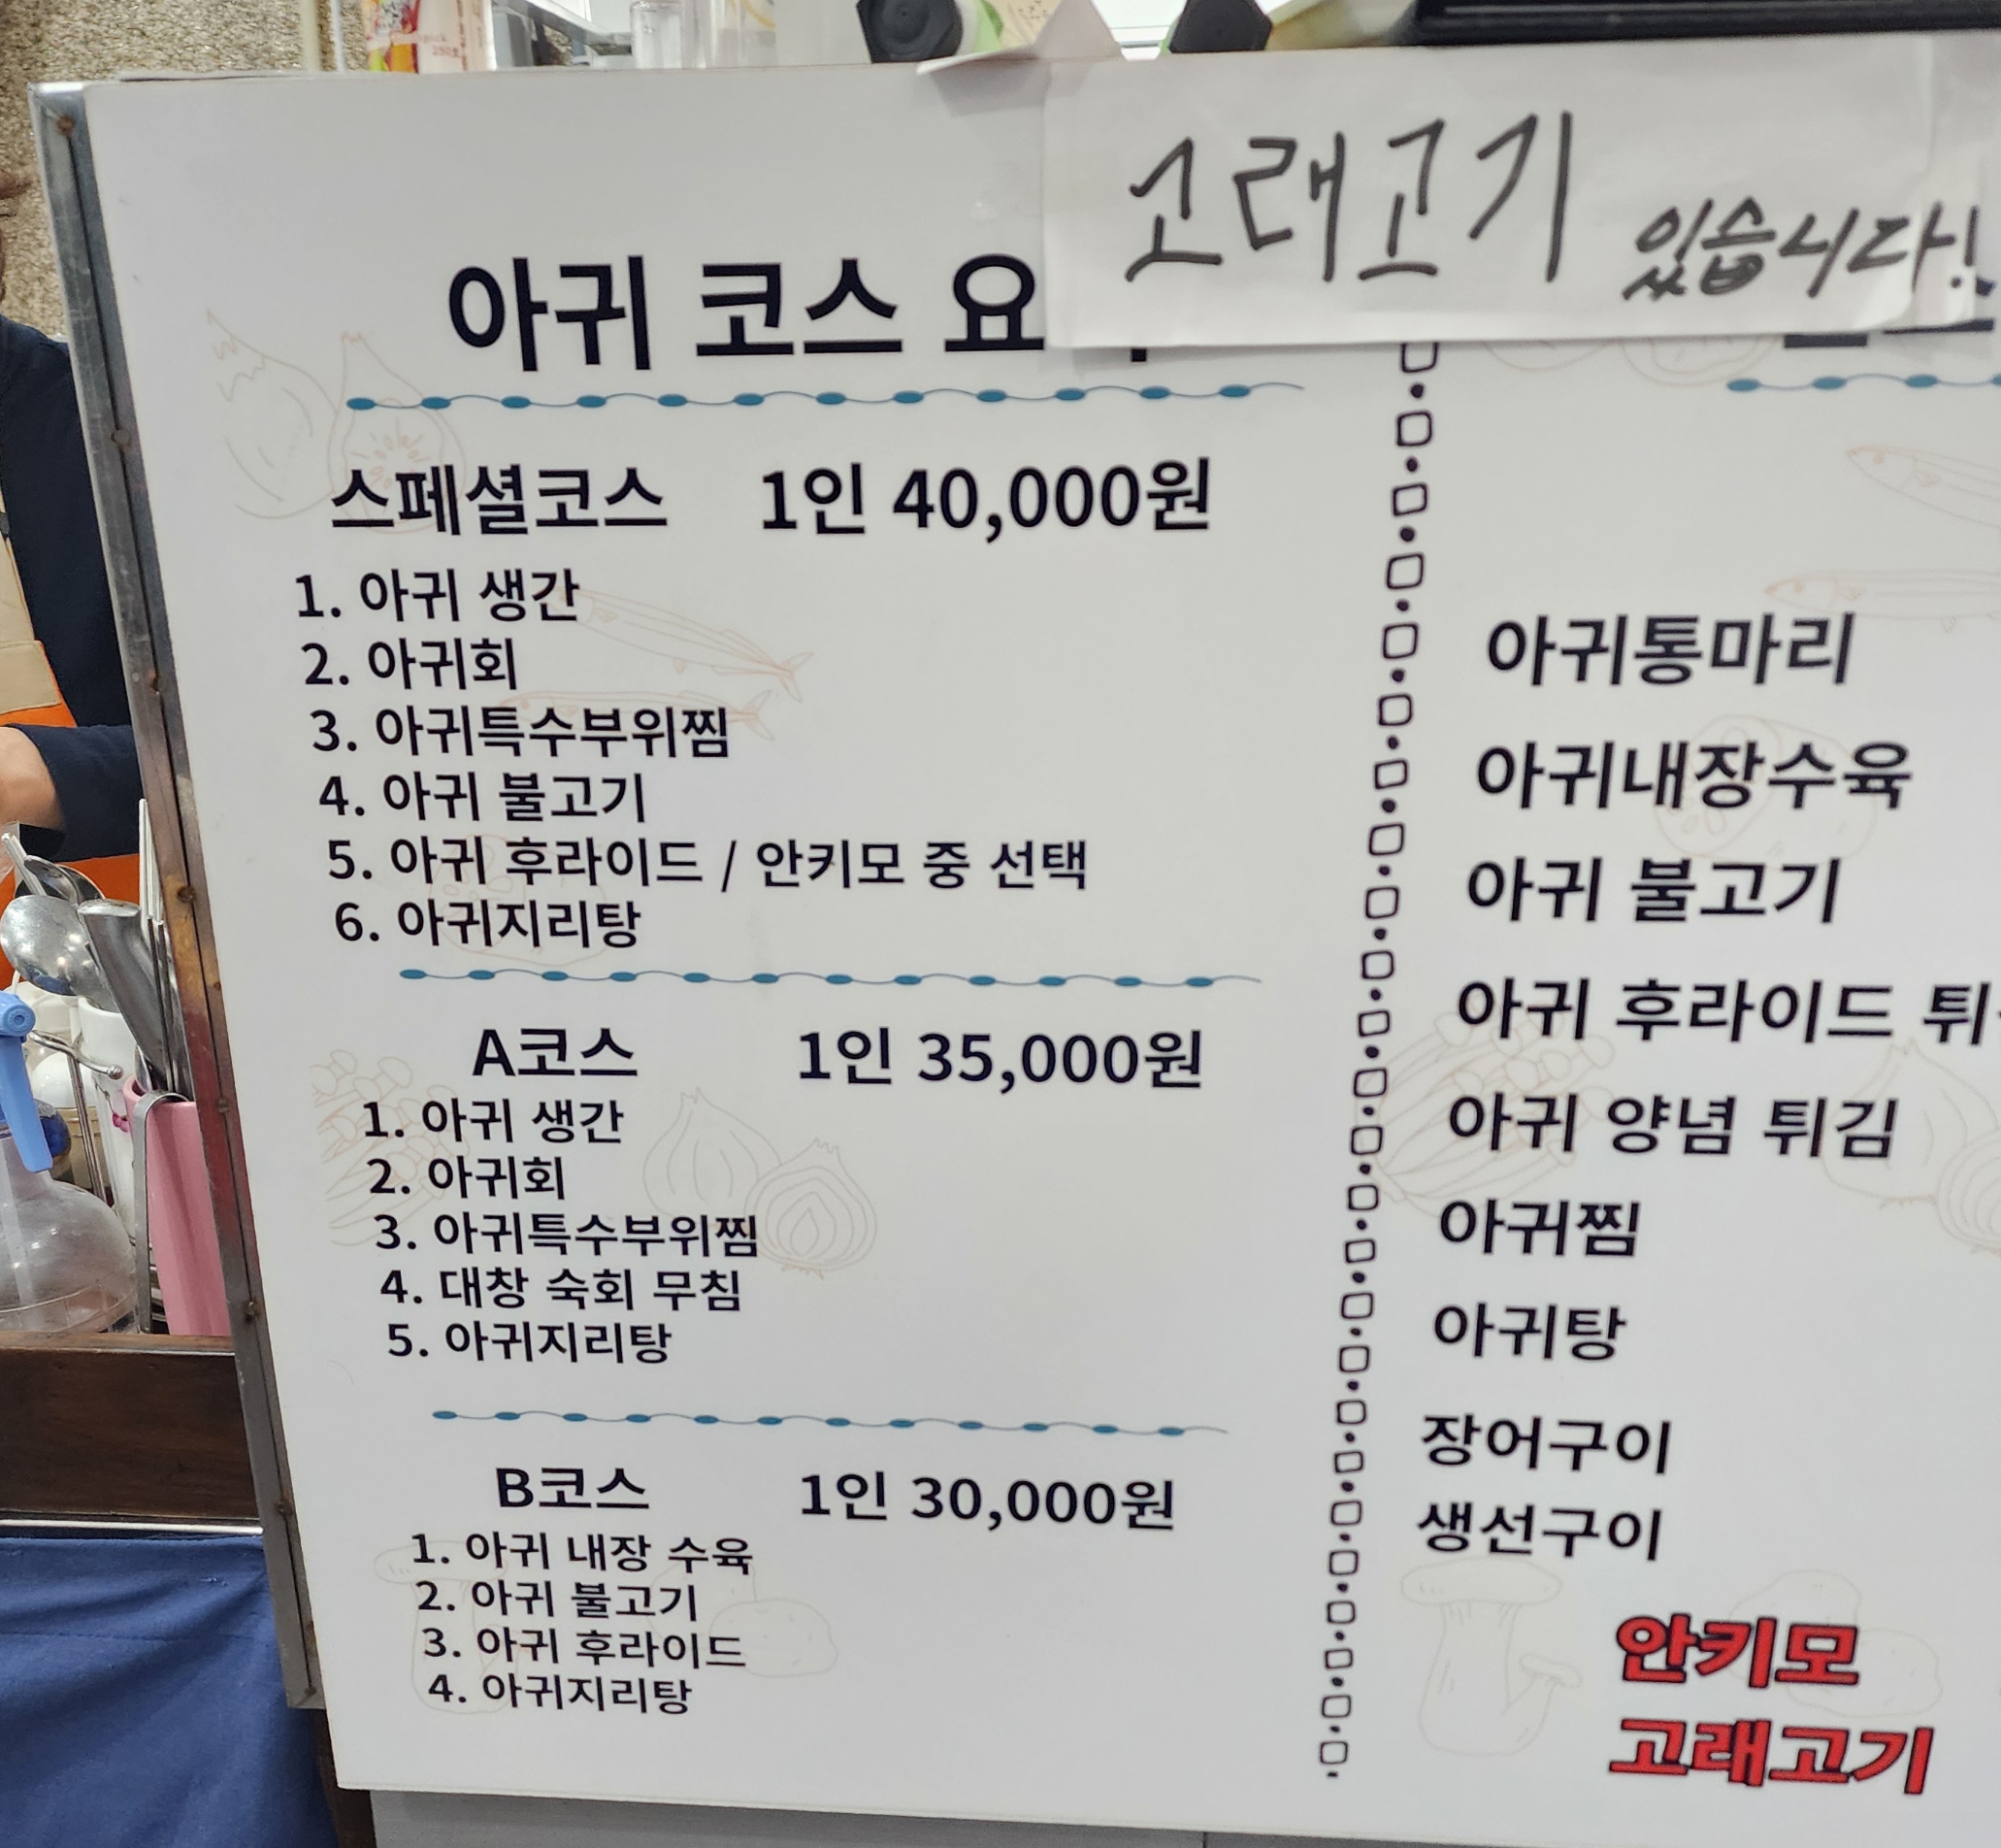 고래고기 있습니다!
아귀 코스 요
스페셜코스 1인 40,000원
1. 아귀 생간
2. 아귀회
3. 아귀특수부위찜
4. 아귀 불고기
5. 아귀 후라이드 / 안키모 중 선택
6. 아귀지리탕
A코스 1인 35,000원
1. 아귀 생간
2. 아귀회
3. 아귀특수부위찜
4. 대창 숙회 무침
5. 아귀지리탕
B코스 1인 30,000원
1. 아귀 내장 수육
2. 아귀 불고기
3. 아귀 후라이드
4. 아귀지리탕
아귀통마리
아귀내장수육
아귀 불고기
아귀 후라이드 튀
아귀 양념 튀김
아귀찜
아귀탕
장어구이
생선구이
안키모
고래고기